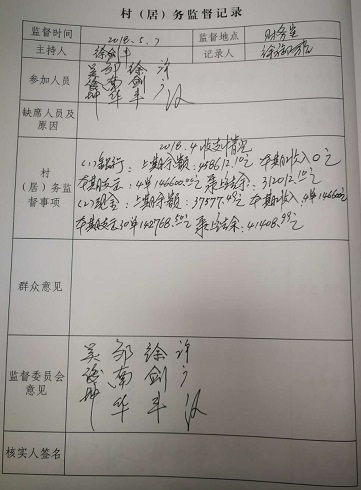 村（居）务监督记录
监督时间 2018.5.7 监督地点 财务室
主持人 徐剑丰 记录人
参加人员 吴 邹 徐 许
南 剑
坤 华 丰
缺席人员及原因
2018.4收支情况
村（居）务监督事项
(1)银行：上期余额：458612.10元 本期收入0元
本期支出：4单146600.00元 累计结余：312012.10元
(2)现金：上期余额：37577.49元 本期收入：4单146600元
本期支出30单142768.50元 累计结余：41408.99元
群众意见
监督委员会意见 吴 邹 徐 许
南 剑
坤 华 丰
核实人签名